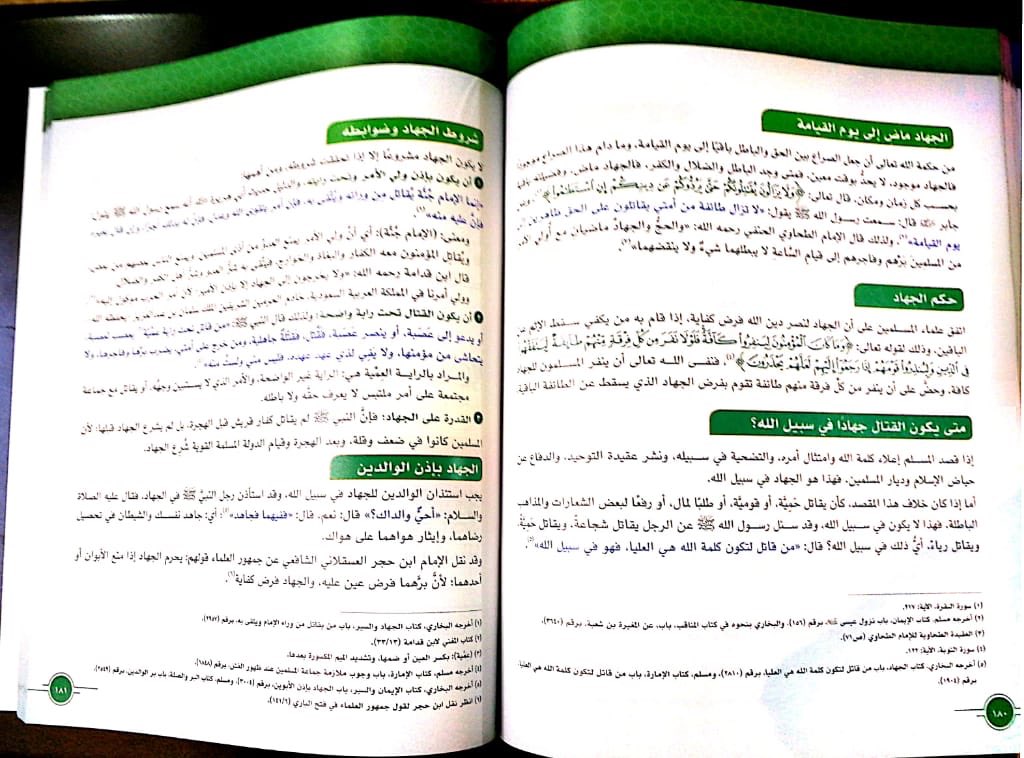 الجهاد ماض إلى يوم القيامة
من حكمة الله تعالى أن جعل الصراع بين الحق والباطل باقيًا إلى يوم القيامة، وما دام هذا الصراع موجود
فالجهاد موجود، لا يحدُّ بوقت معين، فمتى وجد الباطل والضلال والكفر، فالجهاد ماض، وفضيلته باقية
بحسب كل زمان ومكان، قال تعالى: ﴿وَلَا يَزَالُونَ يُقَاتِلُونَكُمْ حَتَّى يَرُدُّوكُمْ عَنْ دِينِكُمْ إِنِ اسْتَطَاعُوا﴾
جابر قال: سمعت رسول الله ﷺ يقول: «لا تزال طائفة من أمتي يقاتلون على الحق ظاهرين إلى
يوم القيامة»(٢)، ولذلك قال الإمام الطحاوي الحنفي رحمه الله: «والحجُّ والجهادُ ماضيان مع أولي الأمر
من المسلمين بَرِّهم وفاجرهم إلى قيام السَّاعةِ لا يبطلهما شيءٌ ولا ينقضهما»(٣).
حكم الجهاد
اتفق علماء المسلمين على أن الجهاد لنصر دين الله فرض كفاية، إذا قام به من يكفي سقط الإثم عن
الباقين، وذلك لقوله تعالى: ﴿وَمَا كَانَ الْمُؤْمِنُونَ لِيَنْفِرُوا كَافَّةً فَلَوْلَا نَفَرَ مِنْ كُلِّ فِرْقَةٍ مِنْهُمْ طَائِفَةٌ لِيَتَفَقَّهُوا
فِي الدِّينِ وَلِيُنْذِرُوا قَوْمَهُمْ إِذَا رَجَعُوا إِلَيْهِمْ لَعَلَّهُمْ يَحْذَرُونَ﴾(٤)، فنفى الله تعالى أن ينفر المسلمون للجهاد
كافة، وحضَّ على أن ينفر من كلِّ فرقة منهم طائفة تقوم بفرض الجهاد الذي يسقط عن الطائفة الباقية
متى يكون القتال جهادًا في سبيل الله؟
إذا قصد المسلم إعلاء كلمة الله وامتثال أمره، والتضحية في سبيله، ونشر عقيدة التوحيد، والدفاع عن
حياض الإسلام وديار المسلمين، فهذا هو الجهاد في سبيل الله.
أما إذا كان خلاف هذا المقصد، كأن يقاتل حَمِيَّة، أو قوميَّة، أو طلبًا لمال، أو رفعًا لبعض الشعارات والمذاهب
الباطلة، فهذا لا يكون في سبيل الله، وقد سئل رسول الله ﷺ عن الرجل يقاتل شجاعةً، ويقاتل حَمِيَّةً
ويقاتل رياءً، أيُّ ذلك في سبيل الله؟ قال: «من قاتل لتكون كلمة الله هي العليا، فهو في سبيل الله»(٥).
(١) سورة البقرة، الآية: ٢١٧.
(٢) أخرجه مسلم، كتاب الإيمان، باب نزول عيسى، برقم (١٥٦)، والبخاري بنحوه في كتاب المناقب، باب، عن المغيرة بن شعبة، برقم (٣٦٤٠).
(٣) العقيدة الطحاوية للإمام الطحاوي (ص٧١).
(٤) سورة التوبة، الآية: ١٢٢.
(٥) أخرجه البخاري، كتاب الجهاد، باب من قاتل لتكون كلمة الله هي العليا، برقم (٢٨١٠)، ومسلم، كتاب الإمارة، باب من قاتل لتكون كلمة الله هي العليا،
برقم (١٩٠٤).
١٨٠
شروط الجهاد وضوابطه
لا يكون الجهاد مشروعًا إلا إذا تحققت شروطه، ومن أهمها:
١ أن يكون بإذن ولي الأمر، وتحت رايته، والدليل حديث أبي هريرة أنه سمع رسول الله ﷺ يقول:
«إنما الإمام جُنَّةٌ يُقاتَل من ورائه ويُتَّقى به، فإن أمر بتقوى الله وعدل فإن له بذلك أجرًا، وإن قال بغيره
فإنَّ عليه منه»(١).
ومعنى: (الإمام جُنَّة): أي أنَّ ولي الأمر يمنع العدوَّ من أذى المسلمين، ويمنع الناس بعضهم من بعض
ويُقاتِل المؤمنون معه الكفار والبغاة والخوارج، فيُتَّقى به شرُّ العدو وشرُّ أهل الشر والضلال.
قال ابن قدامة رحمه الله: «ولا يخرجون إلى الجهاد إلا بإذن الأمير؛ لأن أمر الحرب موكول إليه»(٢)
وولي أمرنا في المملكة العربية السعودية، خادم الحرمين الشريفين الملك سلمان بن عبدالعزيز يحفظه الله
٢ أن يكون القتال تحت راية واضحة؛ ولذلك قال النبي ﷺ: «من قاتل تحت راية عمِّيَّة(٣) يغضب لعصبة،
أو يدعو إلى عَصَبة، أو ينصر عَصَبة، فقُتل، فقتلةٌ جاهلية، ومن خرج على أمتي، يضرب برَّها وفاجرها، ولا
يتحاشى من مؤمنها، ولا يفي لذي عهد عهده، فليس مني ولستُ منه»(٤).
والمراد بالراية العمِّية هي: الراية غير الواضحة، والأمر الذي لا يستبين وجهُه، أو يقاتل مع جماعة
مجتمعة على أمر ملتبس لا يعرف حقُّه ولا باطله.
٣ القدرة على الجهاد: فإنَّ النبي ﷺ لم يقاتل كفار قريش قبل الهجرة، بل لم يشرع الجهاد قبلها؛ لأن
المسلمين كانوا في ضعف وقلة، وبعد الهجرة وقيام الدولة المسلمة القوية شُرع الجهاد.
الجهاد بإذن الوالدين
يجب استئذان الوالدين للجهاد في سبيل الله، وقد استأذن رجل النبيَّ ﷺ في الجهاد، فقال عليه الصلاة
والسلام: «أحيٌّ والداك؟» قال: نعم، قال: «ففيهما فجاهد»(٥)؛ أي: جاهد نفسك والشيطان في تحصيل
رضاهما، وإيثار هواهما على هواك.
وقد نقل الإمام ابن حجر العسقلاني الشافعي عن جمهور العلماء قولهم: يحرم الجهاد إذا منع الأبوان أو
أحدهما؛ لأنَّ برَّهما فرض عين عليه، والجهاد فرض كفاية(٦).
(١) أخرجه البخاري، كتاب الجهاد والسير، باب من يقاتل من وراء الإمام ويتقى به، برقم (٢٩٥٧).
(٢) كتاب المغني لابن قدامة (٣٣/١٣).
(٣) (عمِّيَّة): بكسر العين أو ضمها، وتشديد الميم المكسورة بعدها.
(٤) أخرجه مسلم، كتاب الإمارة، باب وجوب ملازمة جماعة المسلمين عند ظهور الفتن، برقم (١٨٤٨).
(٥) أخرجه البخاري، كتاب الإيمان والسير، باب الجهاد بإذن الأبوين، برقم (٣٠٠٤)، ومسلم، كتاب البر والصلة، باب بر الوالدين، برقم (٢٥٤٩).
(٦) انظر نقل ابن حجر لقول جمهور العلماء في فتح الباري (١٤١/٦).
١٨١